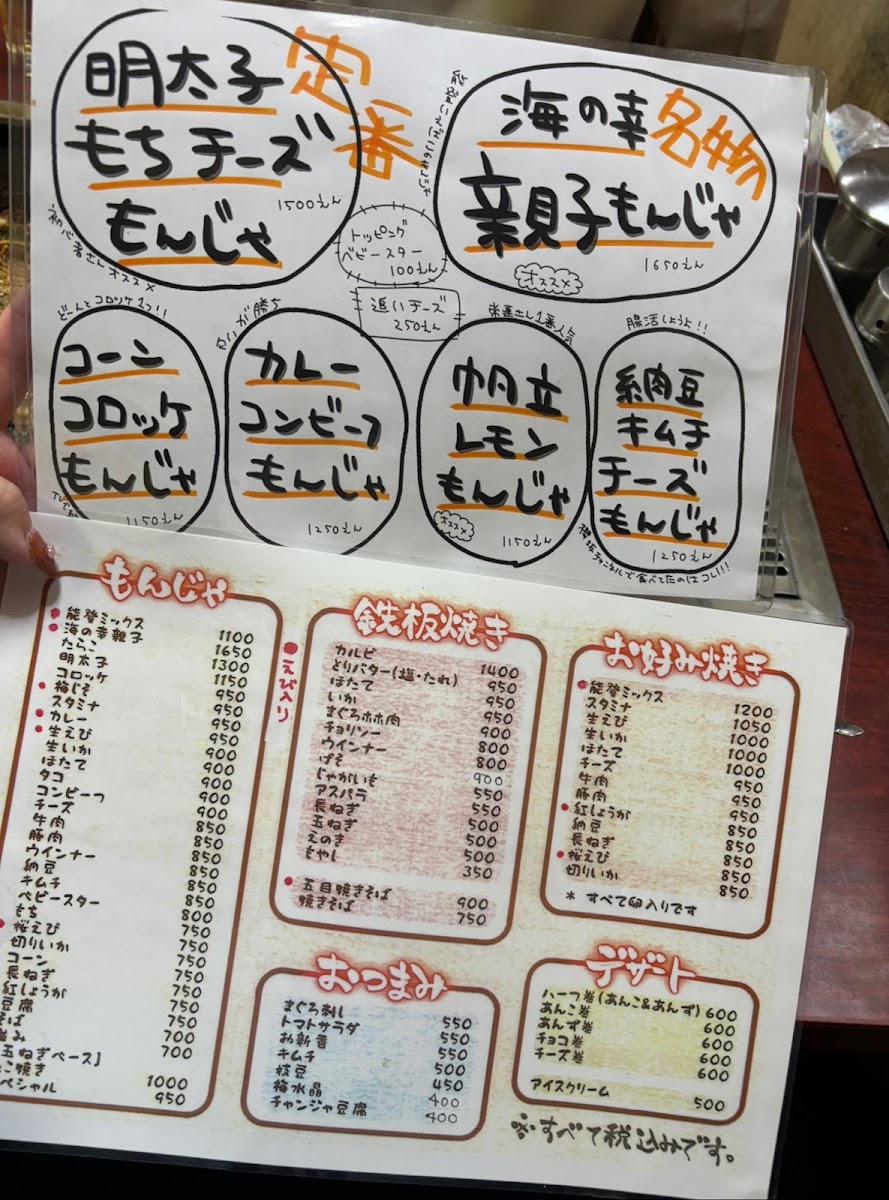 明太子
もちチーズ
もんじゃ
1500えん
定番
初心者さんオススメ
海の幸
親子もんじゃ
名物
1650えん
オススメ
トッピング
ベビースター
100えん
追いチーズ
250えん
どーんとコロッケ1つ!!
コーン
コロッケ
もんじゃ
1150えん
カレー
コンビーフ
もんじゃ
1250えん
常連さん1番人気
帆立
レモン
もんじゃ
オススメ
1150えん
腸活しようよ!!
納豆
キムチ
チーズ
もんじゃ
1250えん
チャンネルで食べてたのはコレ!!!
もんじゃ
能登ミックス 1100
海の幸親子 1650
たらこ 1300
明太子 1150
コロッケ 950
梅じそ 950
スタミナ 950
カレー 950
生えび 900
生いか 900
ほたて 900
タコ 900
コンビーフ 850
チーズ 850
牛肉 850
豚肉 850
ウインナー 850
納豆 850
キムチ 850
ベビースター 800
もち 750
桜えび 750
切りいか 750
コーン 750
長ねぎ 750
紅しょうが 750
豆腐 700
そば 700
玉ねぎベース」
こ焼き 1000
ペシャル 950
●えび入り
鉄板焼き
カルビ 1400
とりバター(塩・たれ) 950
ほたて 950
いか 950
まぐろホホ肉 900
チョリソー 800
ウインナー 800
げそ 900
じゃがいも 550
アスパラ 550
長ねぎ 500
玉ねぎ 500
えのき 500
もやし 350
五目焼きそば 900
焼きそば 750
お好み焼き
能登ミックス 1200
スタミナ 1050
生えび 1000
生いか 1000
ほたて 1000
チーズ 950
牛肉 950
豚肉 950
紅しょうが 850
納豆 850
長ねぎ 850
桜えび 850
切りいか 850
* すべて卵入りです
おつまみ
まぐろ刺し 550
トマトサラダ 550
お新香 550
キムチ 500
枝豆 450
梅水晶 400
チャンジャ豆腐 400
デザート
ハーフ巻(あんこ&あんず) 600
あんこ巻 600
あんず巻 600
チョコ巻 600
チーズ巻 600
アイスクリーム 500
※すべて税込みです。